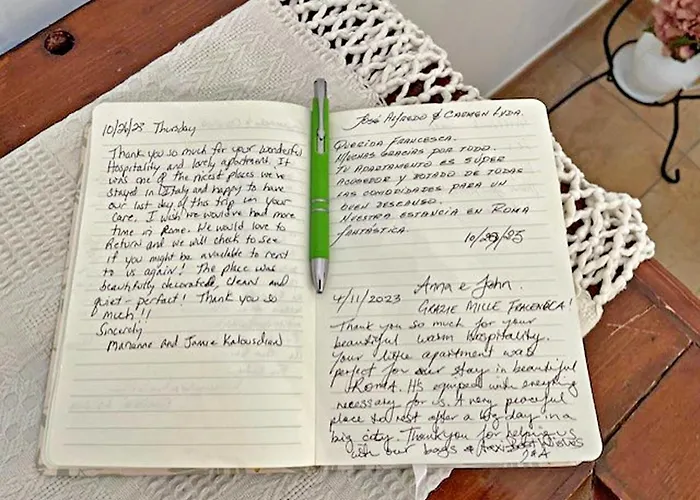 10/26/23 Thursday
Thank you so much for your wonderful
Hospitality and lovely apartment. It
was one of the nicest places we've
stayed in Italy and happy to have
our last day of this trip in your
care. I wish we would've had more
time in Rome. We would love to
Return and we will check to see
if you might be available to rent
to us again! The place was
beautifully decorated, clean and
quiet - perfect! Thank you so
much!!
Sincerely
Marianne and Jamie Kalousdian
José Alfredo & Carmen Lyda.
Querida Francesca.
Muchas gracias por todo.
Tu apartamento es súper
acogedor y dotado de todas
las comodidades para un
buen descanso.
Nuestra estancia en Roma
fantástica.
10/29/23
Anna e John.
4/11/2023
GRAZIE MILLE FRACENECA!
Thank you so much for your
beautiful warm hospitality.
Your little apartment was
perfect for our stay in beautiful
ROMA. It's equiped with everything
necessary for us. A very peaceful
place to rest after a big day in a
big city. Thankyou for helping us
with our bags & Best Wishes
J&A